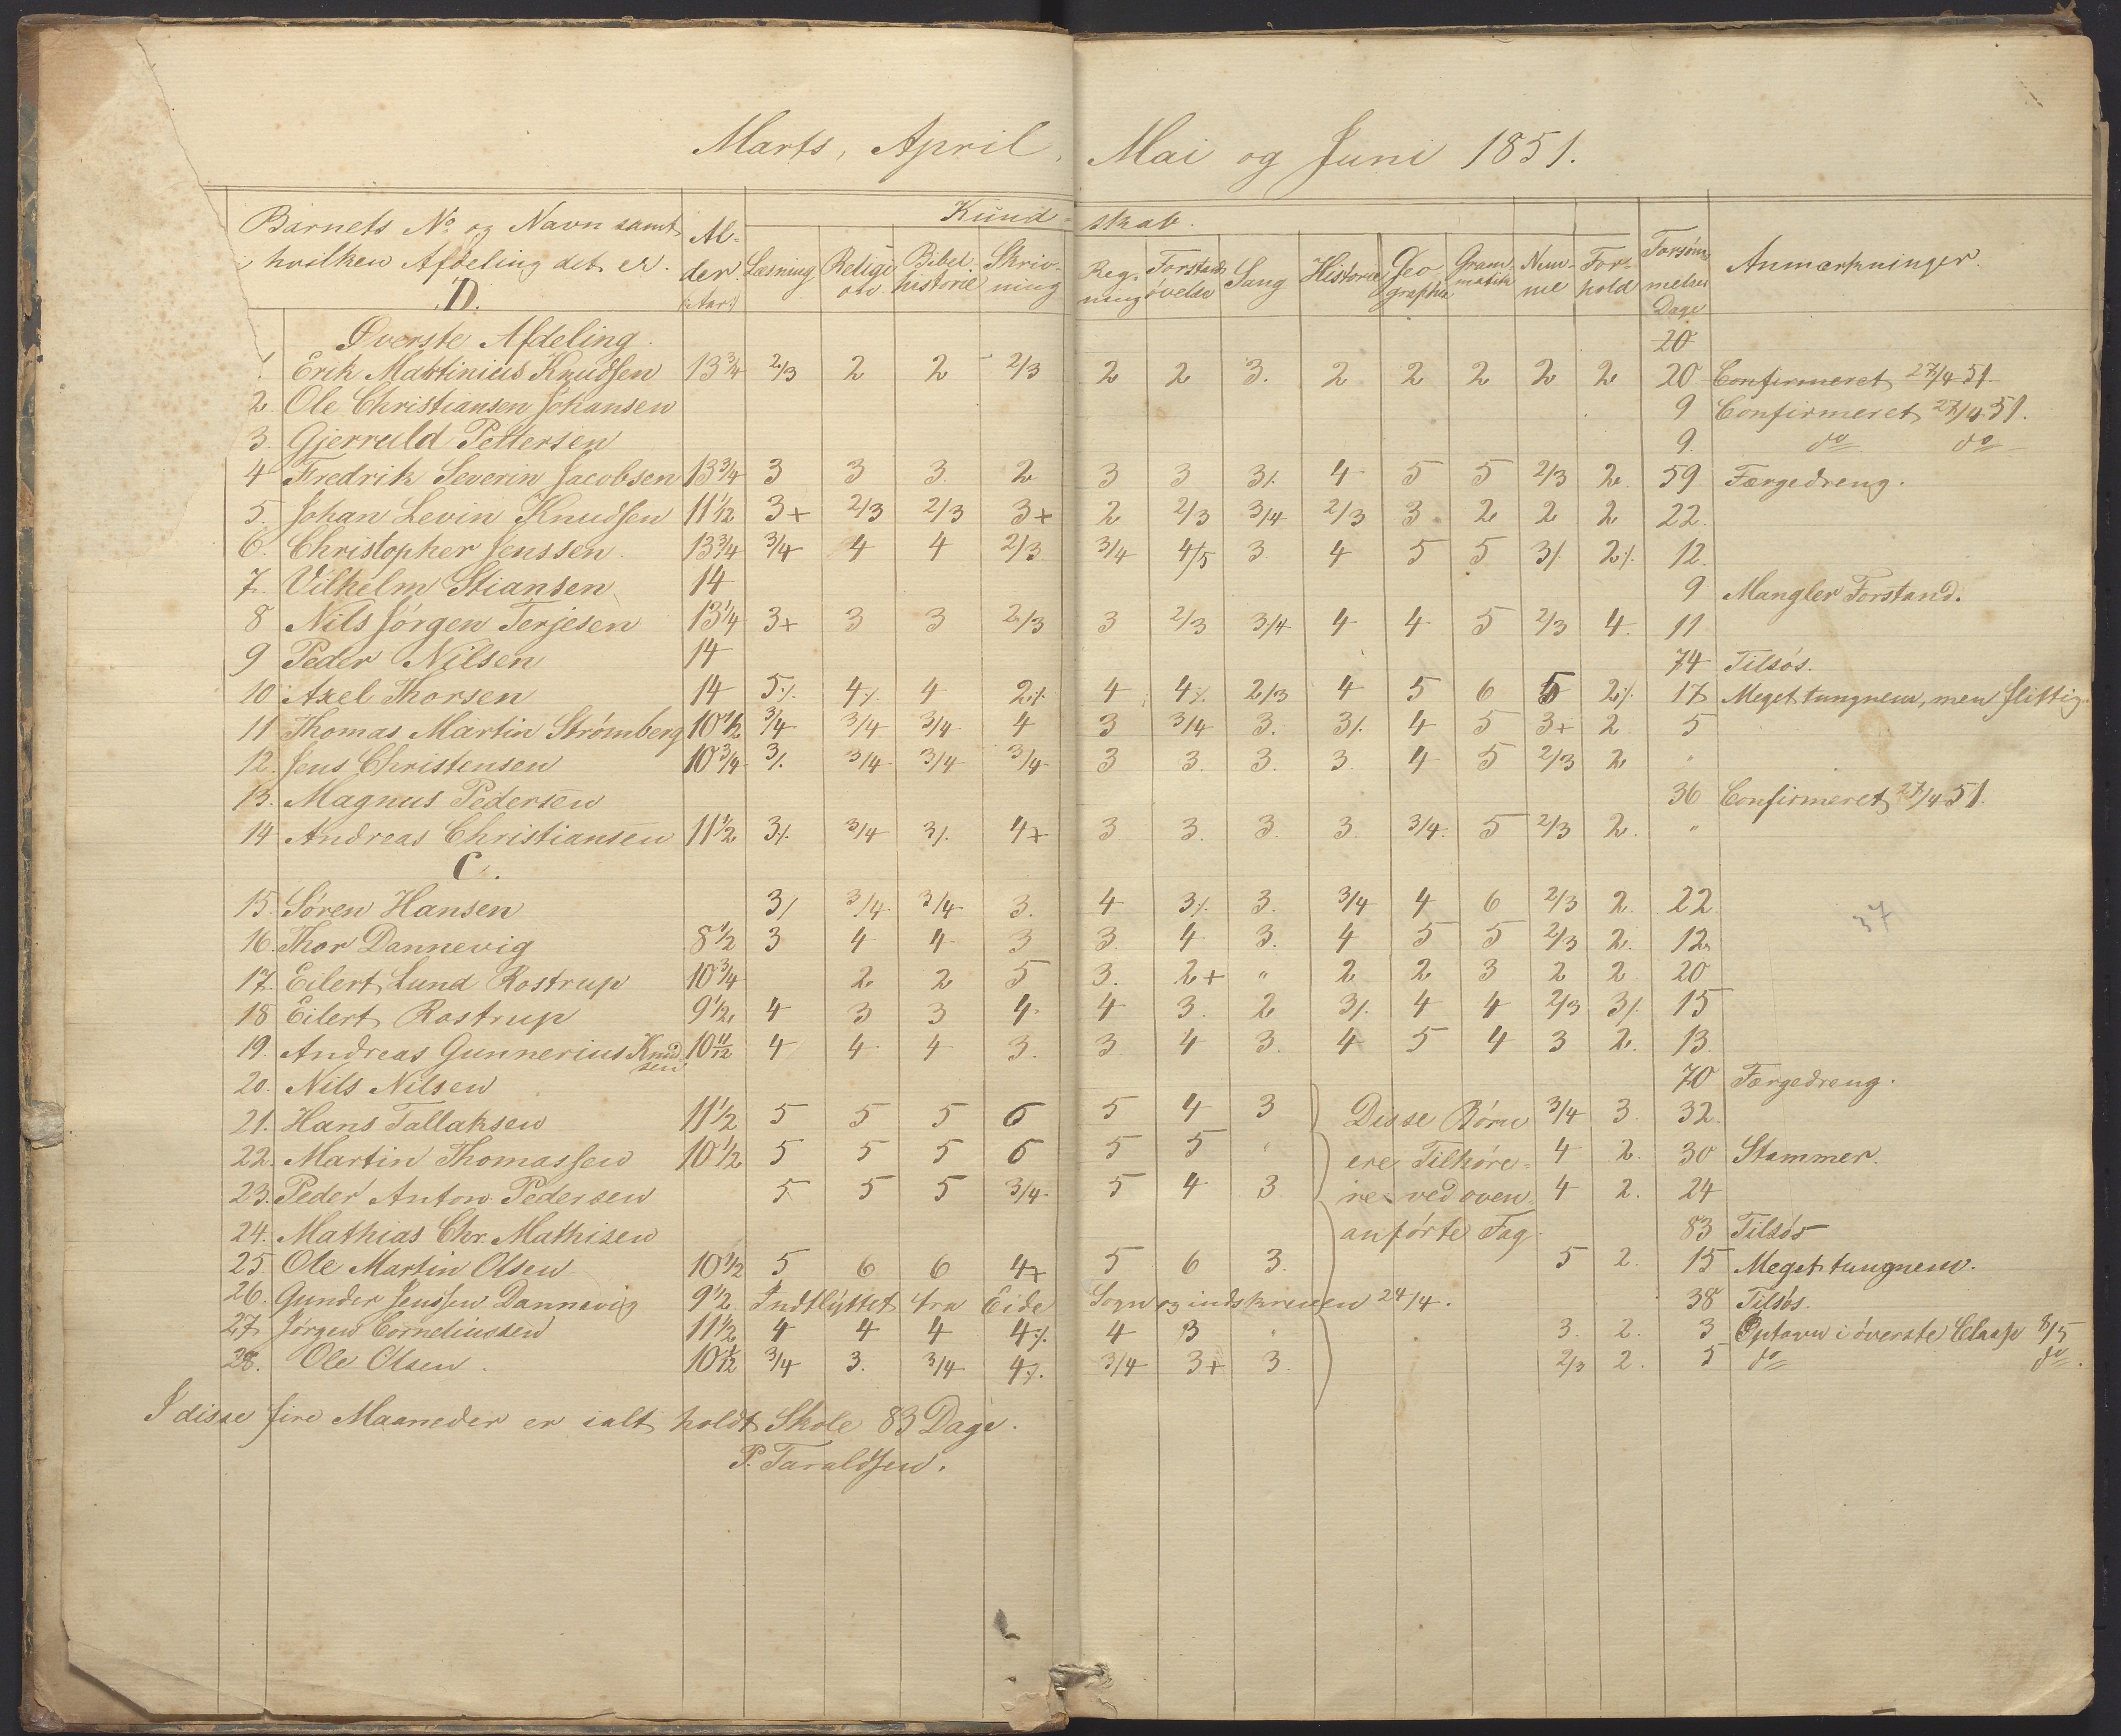 Marts, April, Mai og Juni 1851.
Barnets No og Navn samt hvilken Afdeling det er. D. Al-der. (:Aar:) Kund-skab. Læsning Religion Bibelhistorie Skriv-ning Reg-ning Forstands øvelse Sang Historie Geo graphie Gram-matik Nem-me For-hold Forsøm-melses Dage Anmærkninger.
Øverste Afdeling. 20
1. Erik Martinius Knudsen 13 3/4 2/3 2 2 2/3 2 2 3. 2 2 2 2 2 20 Confirmeret 27/4 51.
2. Ole Christiansen Johansen 9 Confirmeret 27/4 51.
3. Gjerruld Pettersen 9. do do
4 Fredrik Severin Jacobsen 13 3/4 3 3 3. 2 3 3 3% 4 5 5 2/3 2. 59 Færgedreng.
5. Johan Levin Knudsen 11 1/12 3+ 2/3 2/3 3+ 2 2/3 3/4 2/3 3 2 2 2 22.
6. Christopher Jenssen. 13 3/4 3/4 4 4 2/3 3/4 4/5 3. 4 5 5 3% 2% 12.
7. Vilhelm Stiansen 14 9 Mangler Forstand.
8 Nils Jörgen Terjesen 13 1/4 3+ 3 3 2/3 3 2/3 3/4 4 4 5 2/3 4. 11
9 Peder Nilsen 14 74 Tilsøs.
10 Axel Thorsen 14 5% 4% 4 2% 4 4% 2/3 4 5 6 5 2% 17 Meget tungnem, men flittig.
11 Thomas Martin Strømberg 10 1/2 3/4 3/4 3/4 4 3 3/4 3. 3% 4 5 3+ 2 5
12. Jens Christensen 10 3/4 3% 3/4 3/4 3/4 3 3. 3. 3 4 5 2/3 2 "
13. Magnus Pedersen 36 Confirmeret 27/4 51.
14 Andreas Christiansen 11 1/2 3% 3/4 3% 4+ 3 3. 3. 3 3/4 5 2/3 2. "
C.
15. Søren Hansen 3% 3/4 3/4 3. 4 3% 3. 3/4 4 6 2/3 2. 22. 37
16. Thor Dannevig 8 1/2 3 4 4 3 3. 4 3. 4 5 5 2/3 2. 12.
17. Eilert Lund Rostrup 10 3/4 2 2 5 3. 2+ " 2 2 3 2 2 20
18 Eilert Rostrup 9 1/2 4 3 3 4 4 3. 2 3% 4 4 2/3 3% 15
19. Andreas Gunnerius Knudsen 10 11/12 4 4 4 3. 3 4 3. 4 5 4 3 2. 13.
20. Nils Nilsen 70 Færgedreng.
21. Hans Tallaksen 11 1/2 5 5 5 6 5 4 3 Disse Børn 3/4 3. 32.
22. Martin Thomassen 10 1/2 5 5 5 6 5 5 " ere Tilhøre- 4 2. 30 Stammer.
23. Peder Anton Pedersen 5 5 5 3/4 5 4 3 re ved oven- 4 2. 24
24. Mathias Chr. Mathisen anförte Fag. 83 Tilsøs
25 Ole Martin Olsen 10 1/2 5 6 6 4+ 5 6 3. 5 2. 15 Meget tungnem.
26. Gunder Jenssen Dannevig 9 1/2 Indflyttet fra Eide Sogn og indskreven 24/4. 38 Tilsøs.
27. Jörgen Corneliussen 11 1/2 4 4 4 4% 4 3 " 3. 2. 3 Optaven i överste Classe 8/5
28. Ole Olsen. 10 1/12 3/4 3. 3/4 4% 3/4 3+ 3. 2/3 2. 5 do do.
I disse fire Maaneder er ialt holdt Skole 83 Dage.
P. Taraldsen.